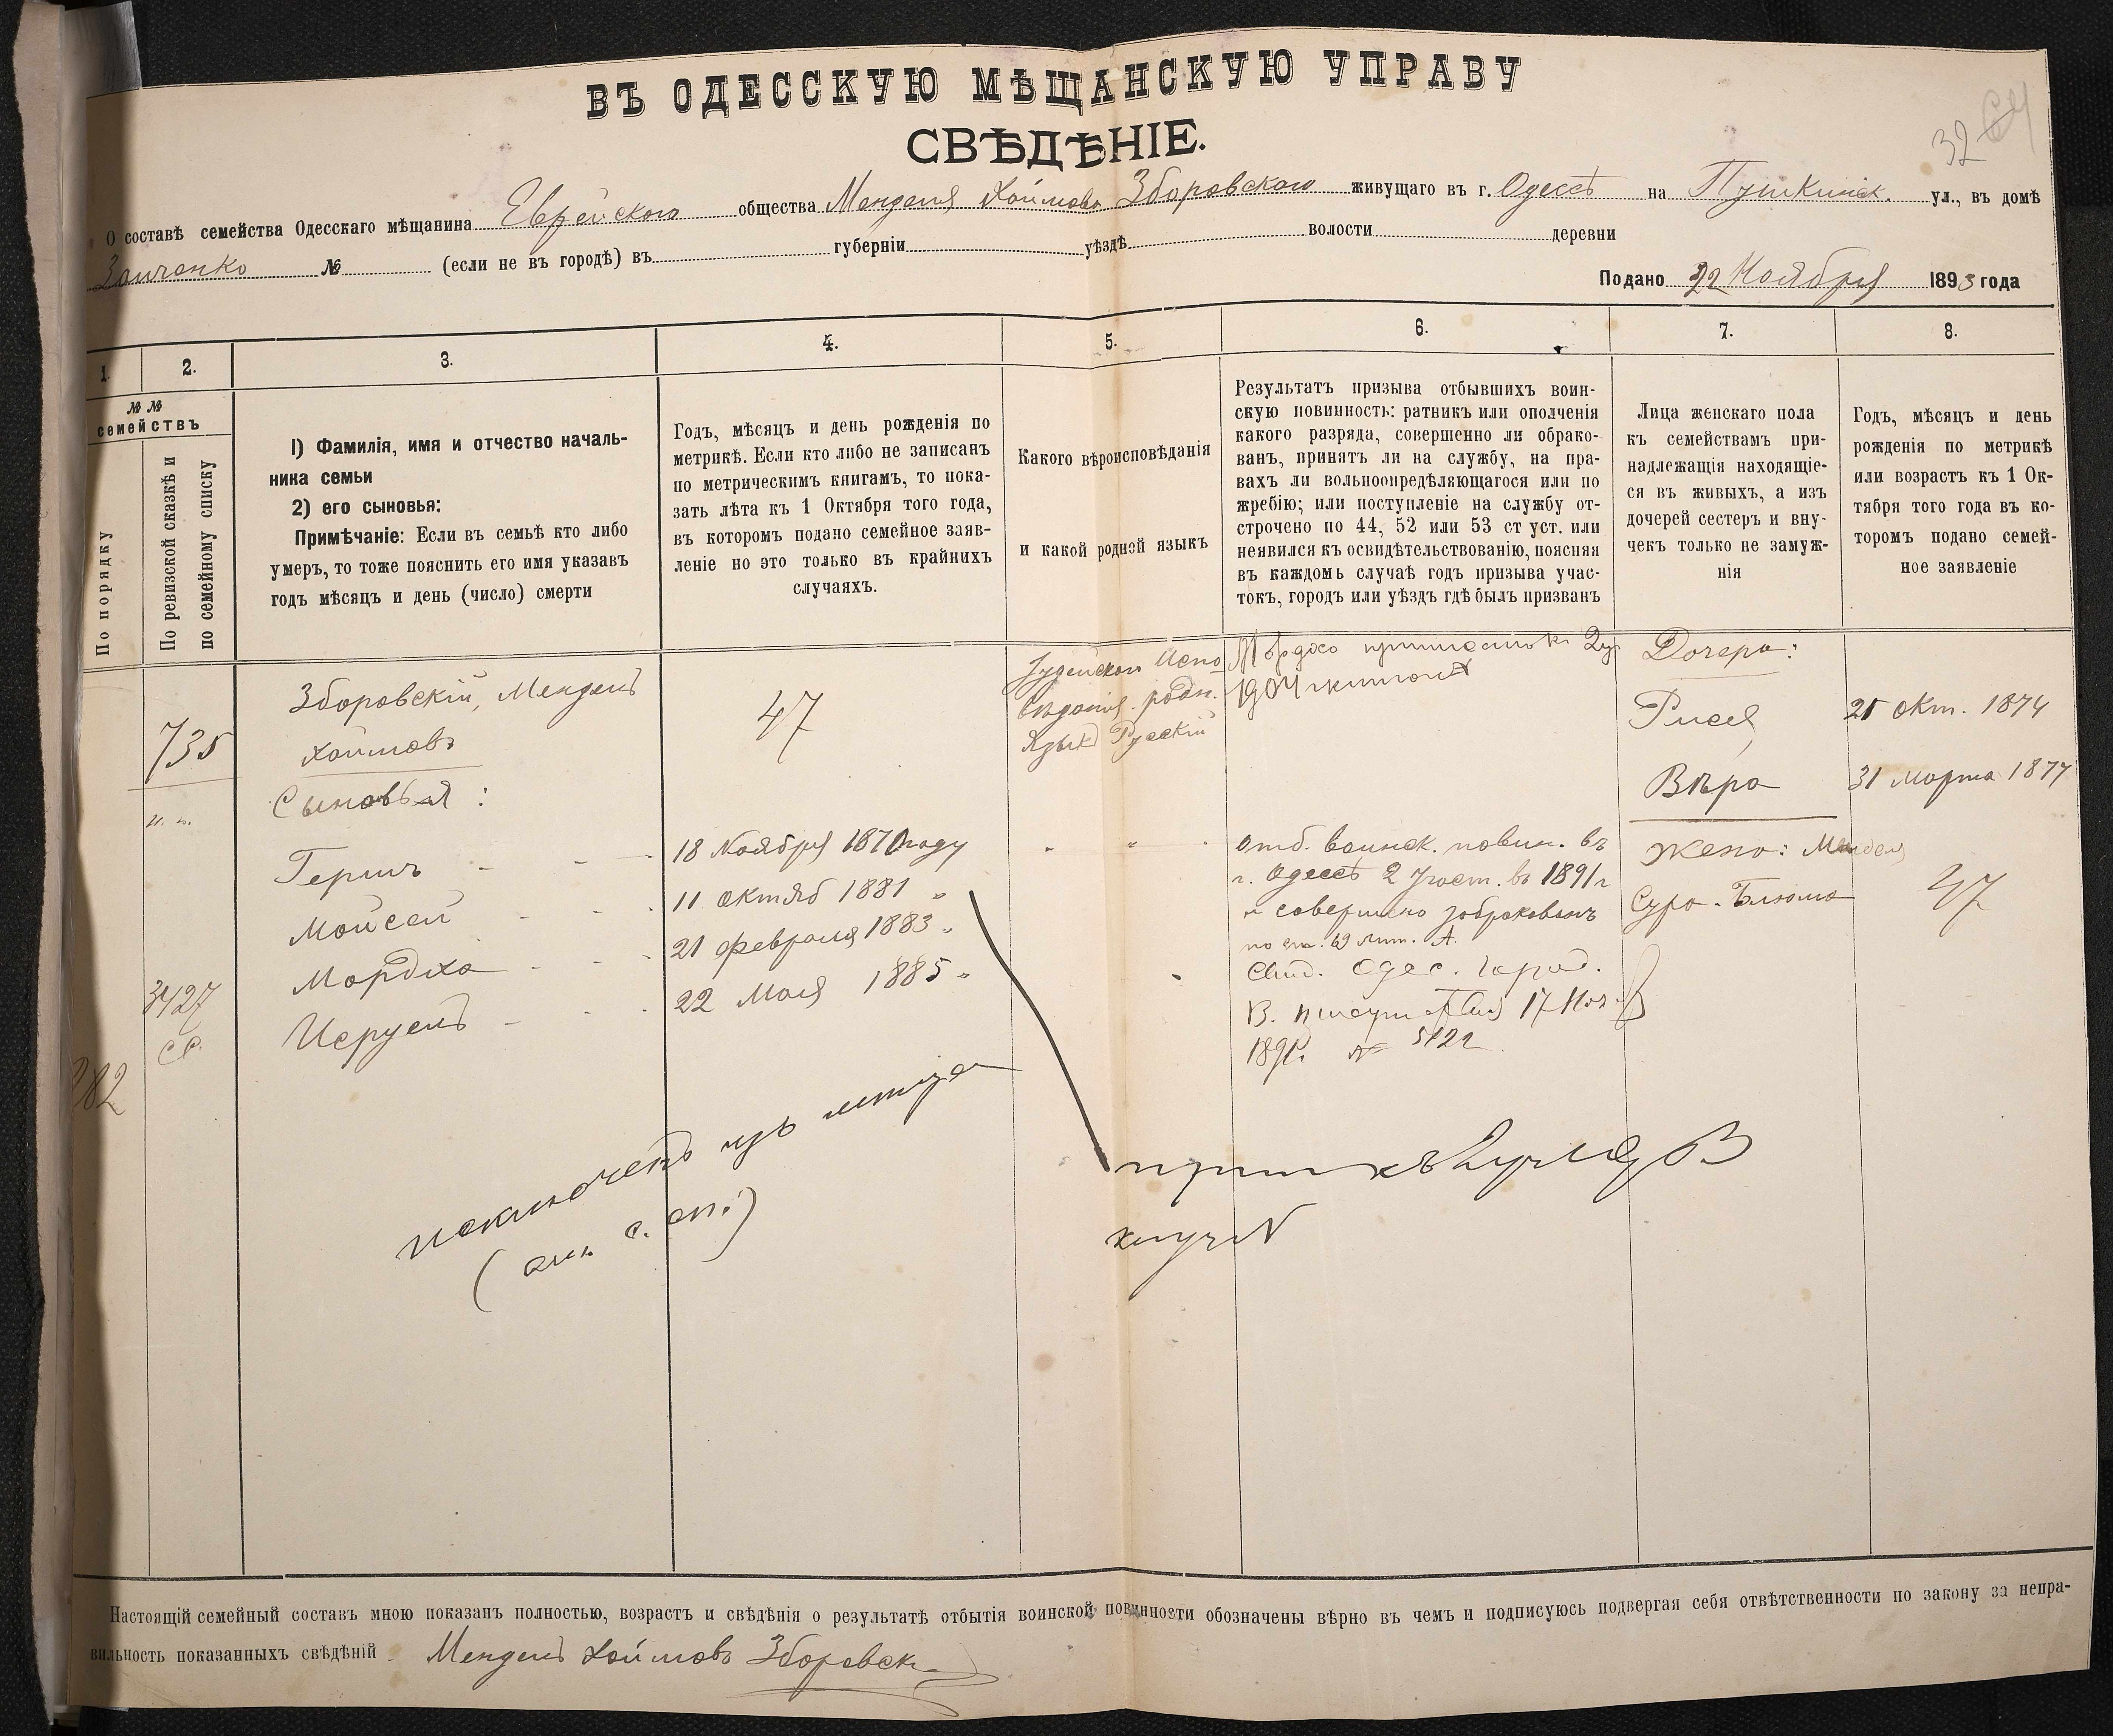 ВЪ ОДЕССКУЮ МѢЩАНСКУЮ УПРАВУ
СВѢДѢНІЕ.
32
О составѣ семейства Одесскаго мѣщанина Еврейского общества Менделя Хаимова Зборовского живущаго въ г. Одессѣ на Пушкинск. ул., въ домѣ
Заиченко № (если не въ городѣ) въ губерніи уѣздѣ волости деревни
Подано 22 Ноября 1893 года
1. 2. 3. 4. 5. 6. 7. 8.
№ №
семействъ
По порядку
По ревизской сказкѣ и
по семейному списку
1) Фамилія, имя и отчество началь-
ника семьи
2) его сыновья:
Примѣчаніе: Если въ семьѣ кто либо
умеръ, то тоже пояснить его имя указавъ
годъ мѣсяцъ и день (число) смерти
Годъ, мѣсяцъ и день рожденія по
метрикѣ. Если кто либо не записанъ
по метрическимъ книгамъ, то пока-
зать лѣта къ 1 Октября того года,
въ которомъ подано семейное заяв-
леніе но это только въ крайнихъ
случаяхъ.
Какого вѣроисповѣданія
и какой родной языкъ
Результатъ призыва отбывшихъ воин-
скую повинность: ратникъ или ополченія
какого разряда, совершенно ли обрако-
ванъ, принятъ ли на службу, на пра-
вахъ ли вольноопредѣляющагося или по
жребію; или поступленіе на службу от-
строчено по 44, 52 или 53 ст уст. или
неявился къ освидѣтельствованію, поясняя
въ каждомъ случаѣ годъ призыва учас-
токъ, городъ или уѣздъ гдѣ былъ призванъ
Лица женскаго пола
къ семействамъ при-
надлежащія находящіе-
ся въ живыхъ, а изъ
дочерей сестеръ и вну-
чекъ только не замуж-
нія
Годъ, мѣсяцъ и день
рожденія по метрикѣ
или возрастъ къ 1 Ок-
тября того года въ ко-
торомъ подано семей-
ное заявленіе
735
Зборовскій, Мендель
Хаимовъ
47
Іудейскои Испо
вѣданія. родн.
Языкъ Русскій
Мордко
1904
Дочери:
Рися 25 Окт. 1874
Вѣра 31 Марта 1877
Сыновья:
Гершъ 18 Ноября 1870 году
Мойсей 11 октяб 1881 "
Мордко 21 февраля 1883 "
Исруель 22 Мая 1885 "
отб. воинск. повин. въ
г. Одессѣ 2 участ. въ 1891 г
и совершено забракованъ
по ст. 69 лит. А.
Свид. Одес. Город.
В. присутствія 17 Ноя
1891 г. № 5122
Жена: Менделя
Сура-Блюма 47
3427
СС.
382
исключенъ изъ
Настоящій семейный составъ мною показанъ полностью, возрастъ и свѣдѣнія о результатѣ отбытія воинской повинности обозначены вѣрно въ чемъ и подписуюсь подвергая себя отвѣтственности по закону за непра-
вильность показанныхъ свѣдѣній Мендель Хаимовъ Зборовск